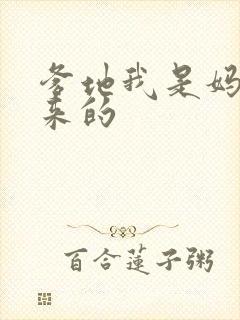 爹地我是妈
来的
百合莲子粥